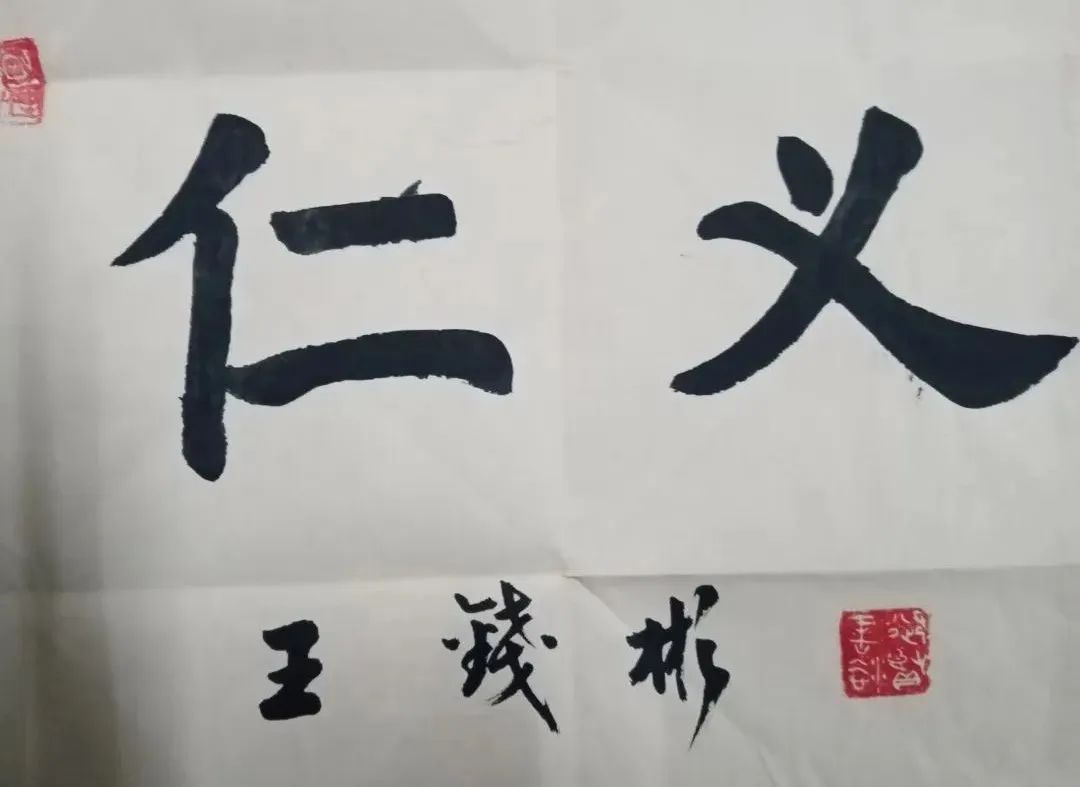 仁义
王錢彬